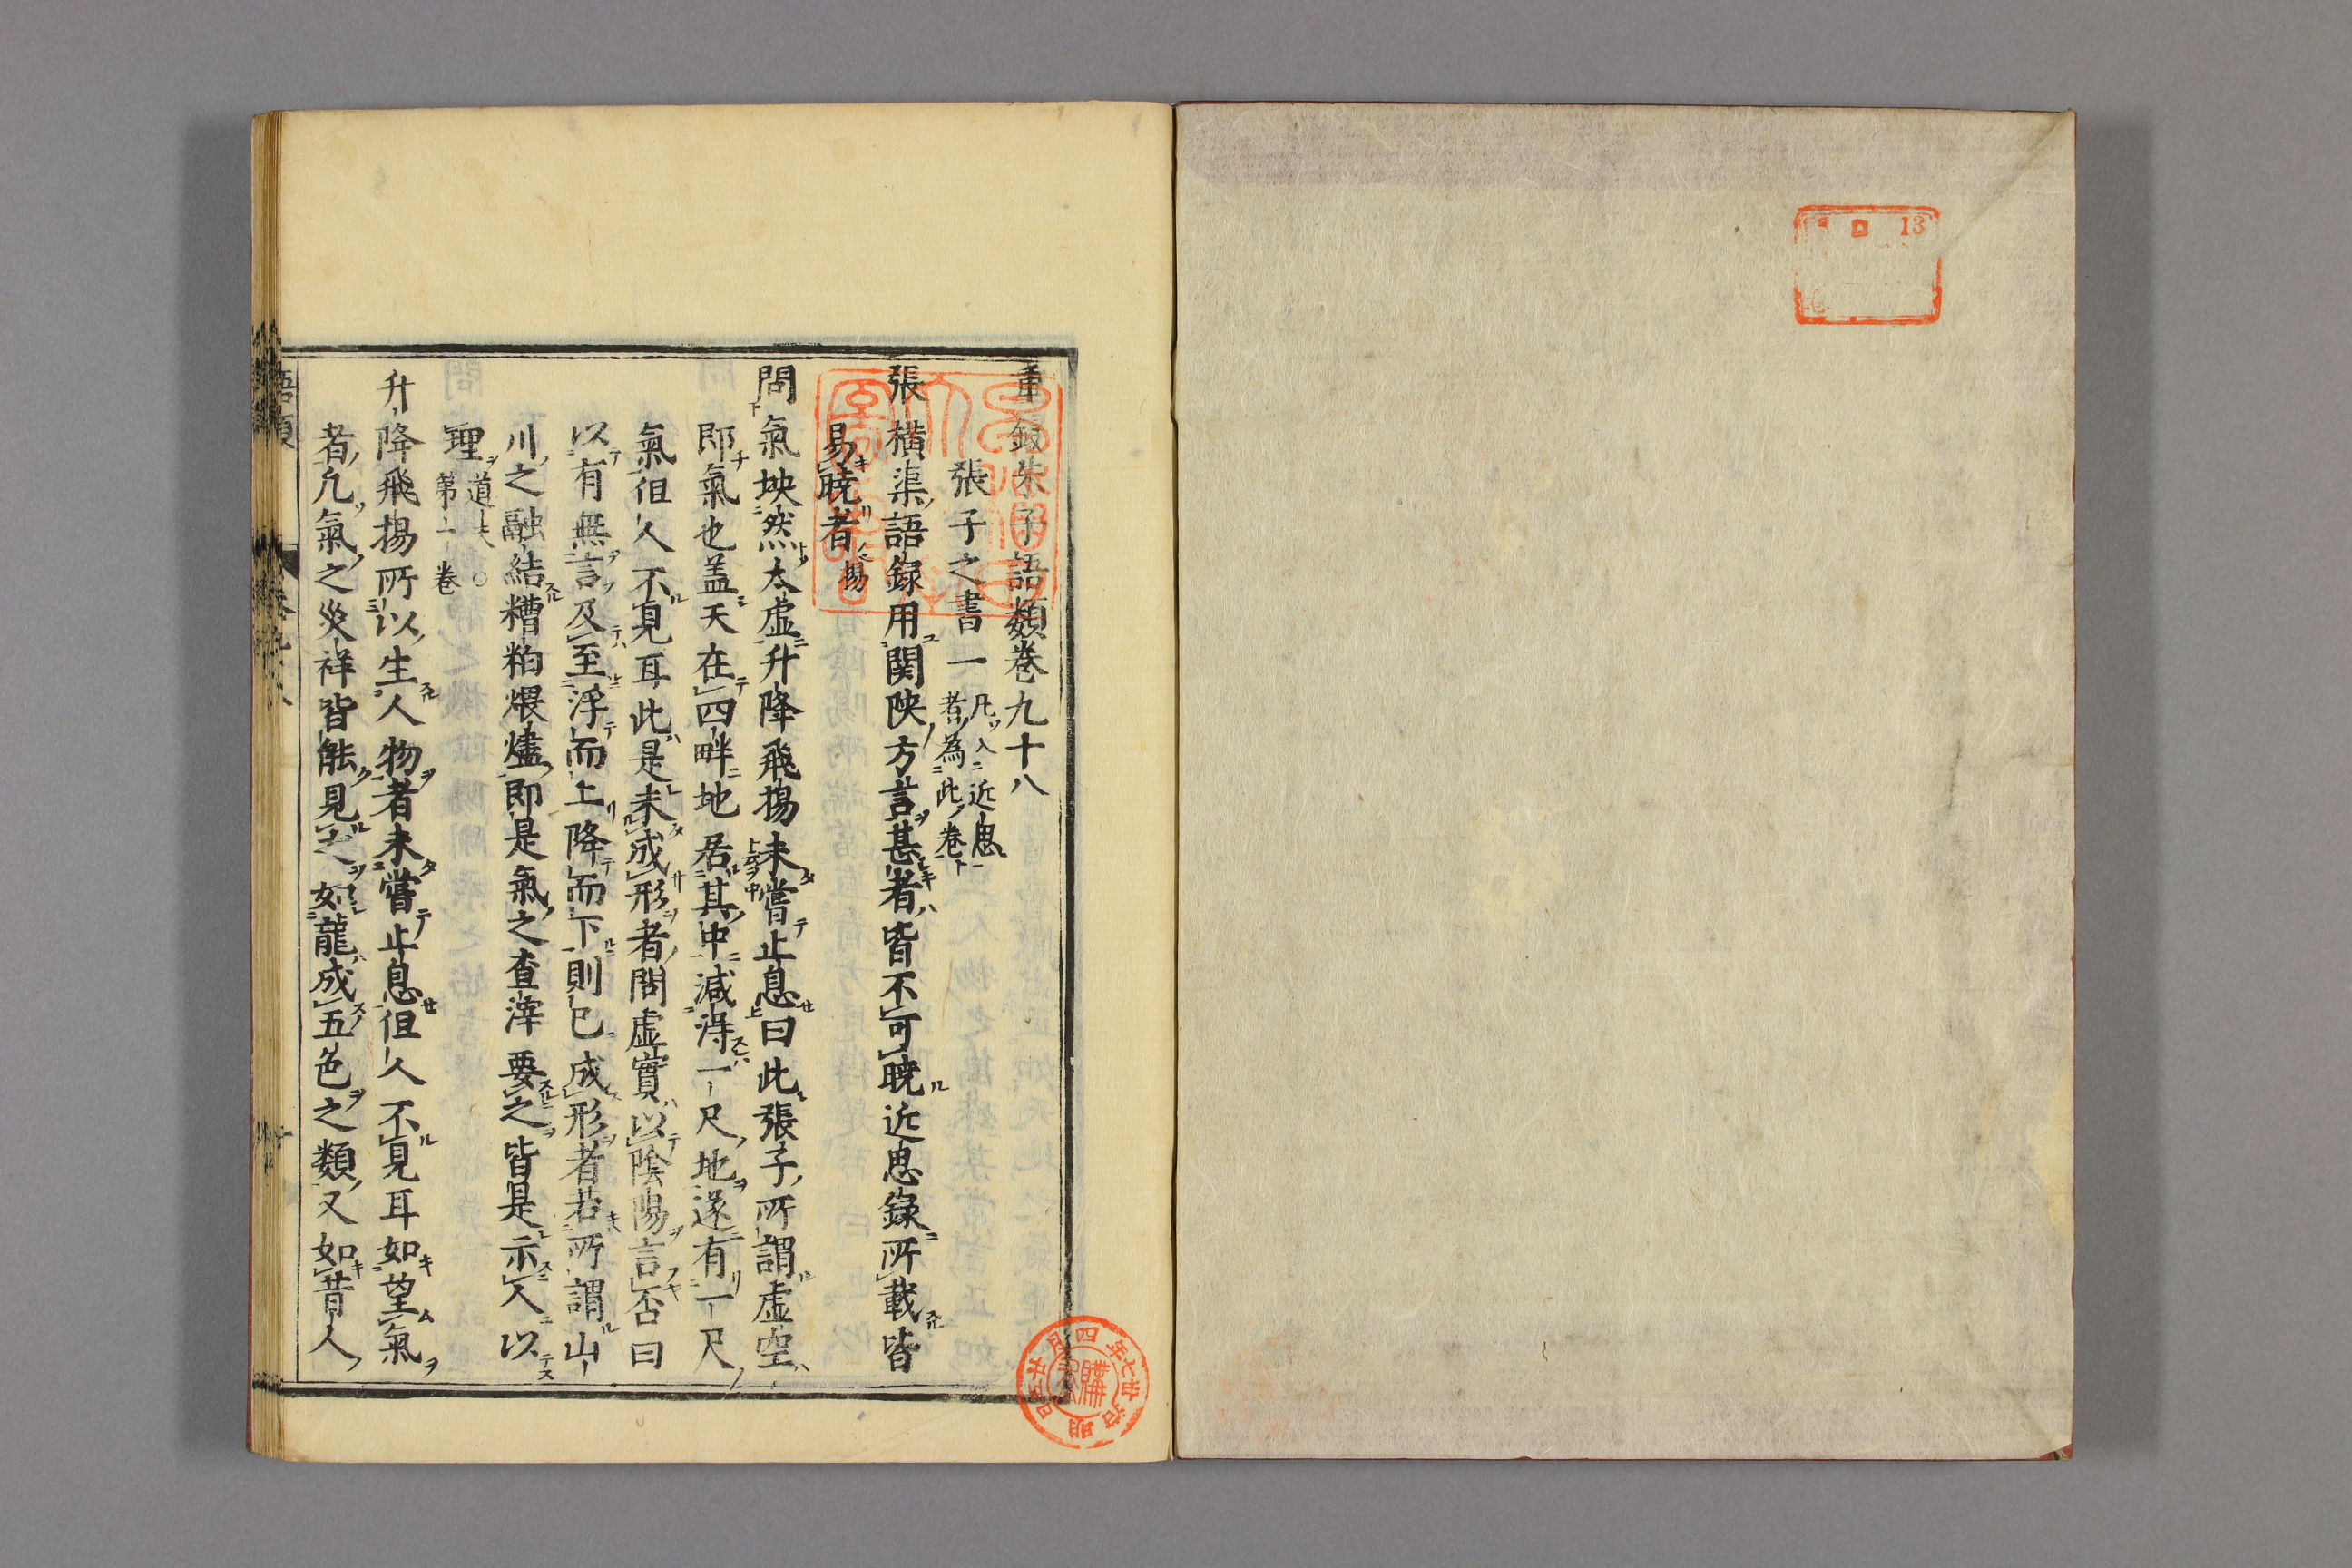 重鋟朱子語類卷九十八
張子之書一 凡入近思者為此卷
張橫渠語録用関陝方言甚者皆不可曉近思錄所載皆
易曉者 楊
問氣坱然太虚升降飛揚未嘗止息曰此張子所謂虚空
即氣也盖天在四畔地居其中減得一尺地遂有一尺
氣但人不見耳此是未成形者問虚實以陰陽言否曰
以有無言及至浮而上降而下則已成形者若所謂山
川之融結糟粕煨燼即是氣之査滓要之皆是示人以
理 道夫○第一卷
升降飛揚所以生人物者未嘗止息但人不見耳如望氣
者凡氣之災祥皆能見之如龍成五色之類又如昔人
語類 卷九十八
13
明治廿七年四月廿五日
購求